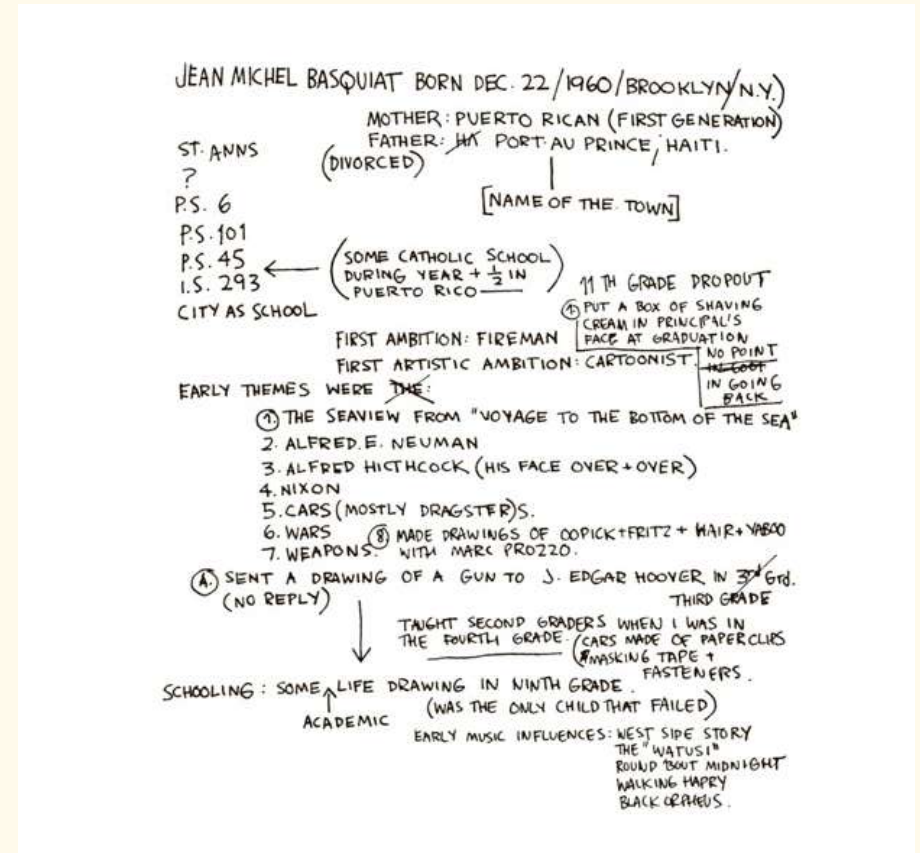 JEAN MICHEL BASQUIAT BORN DEC. 22/1960/BROOKLYN/N.Y.)
MOTHER: PUERTO RICAN (FIRST GENERATION)
FATHER: HA PORT-AU PRINCE, HAITI.
(DIVORCED)
[NAME OF THE TOWN]
ST. ANNS
?
P.S. 6
P.S. 101
P.S. 45
I.S. 293
CITY AS SCHOOL
(SOME CATHOLIC SCHOOL
DURING YEAR + 1/2 IN
PUERTO RICO)
11 TH GRADE DROPOUT
1 PUT A BOX OF SHAVING
CREAM IN PRINCIPAL'S
FACE AT GRADUATION
NO POINT
IN GOING
BACK
FIRST AMBITION: FIREMAN
FIRST ARTISTIC AMBITION: CARTOONIST
EARLY THEMES WERE THE:
1. THE SEAVIEW FROM "VOYAGE TO THE BOTTOM OF THE SEA"
2. ALFRED.E. NEUMAN
3. ALFRED HICTHCOCK (HIS FACE OVER + OVER)
4. NIXON
5. CARS (MOSTLY DRAGSTER)S.
6. WARS
7. WEAPONS.
8 MADE DRAWINGS OF OOPICK+FRITZ + HAIR+YABOO
WITH MARC PROZZO.
A. SENT A DRAWING OF A GUN TO J. EDGAR HOOVER IN 3rd Grd.
THIRD GRADE
(NO REPLY)
TAUGHT SECOND GRADERS WHEN I WAS IN
THE FOURTH GRADE. (CARS MADE OF PAPERCLIPS
MASKING TAPE +
FASTENERS.
SCHOOLING: SOME LIFE DRAWING IN NINTH GRADE.
ACADEMIC
(WAS THE ONLY CHILD THAT FAILED)
EARLY MUSIC INFLUENCES: WEST SIDE STORY
THE "WATUSI"
ROUND 'BOUT MIDNIGHT
WALKING HARRY
BLACK ORPHEUS.